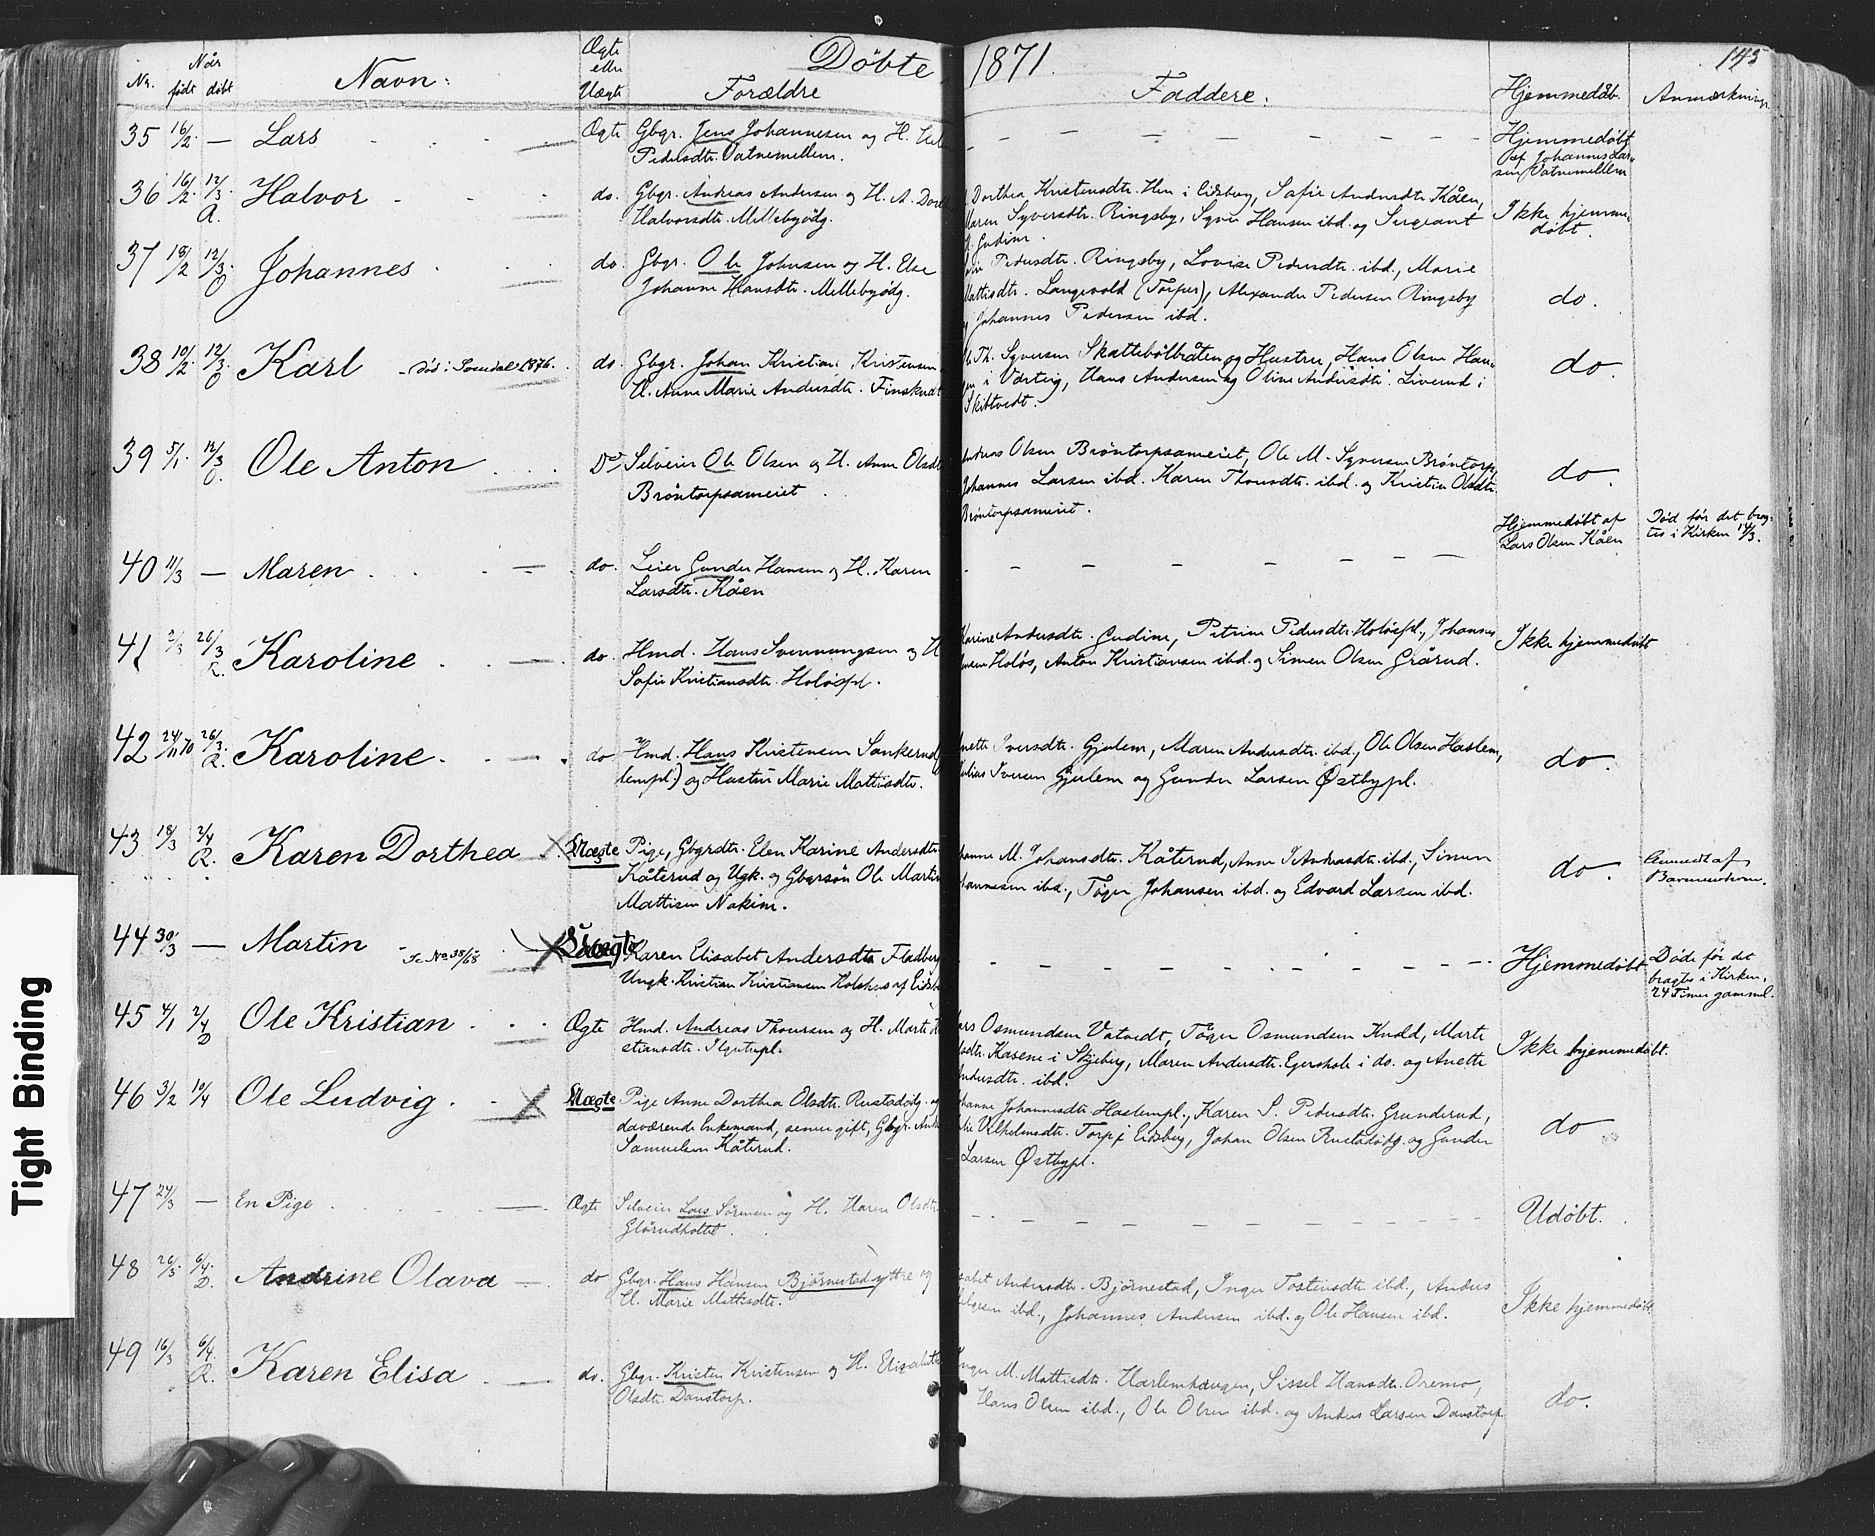 Døbte 1871. 145
Nr. Når født døbt Navn: Ægte eller Uægte Forældre Faddere. Hjemmedåb. Anmærkninger
35 16/2 — Lars Ægte Gbgr. Jens Johannesen og H.
Pedersdtr. Vatnemellem.
Hjemmedøbt
af Johannes Lar-
sen Vatnemellem
36 16/2 12/3 A. Halvor do. Gbgr. Andreas Andersen og H. A. Dor
Halvorsdtr. Mellebyødg.
Dorthea Kristensdtr. Hen i Eidsberg, Sofie Andersdtr. Kåen,
Maren Syversdtr. Ringsby, Syver Hansen ibd. og Sergeant
Gudim.
Ikke hjemme-
døbt.
37 18/2 12/3 O Johannes do. Gbgr. Ole Johnsen og H. Else
Johanne Hansdtr. Mellebyødg.
Pedersdtr. Ringsby, Lovise Pedersdtr. ibd., Marie
Mattisdtr. Langevold (Torper), Alexander Pedersen Ringsby
Johannes Pedersen ibd.
do.
38 10/2 12/3 O Karl do. Gbgr. Johan Kristian Kristensen
H. Anne Marie Andersdtr.
Th. Syversen Skattebølbråten og Hustru, Hans Olsen Han-
i Varteig, Hans Andersen og Oline Andersdtr. Liverud i
Skibtvedt.
do.
39 5/1 12/3 O. Ole Anton Do Selveier Ole Olsen og H. Anne Olsdt
Brøntorpsameiet
Andreas Olsen Brøntorpsameiet, Ole M. Syversen Brøntorp,
Johannes Larsen ibd. Karen Thoresdtr. ibd. og Kristin Olsdtr.
Brøntorpsameiet.
do.
40 11/3 — Maren do. Leier Gunder Hansen og H. Karen
Larsdtr. Kåen
Hjemmedøbt af
Lars Olsen Kåen
Død før det brag-
tes i Kirken
41 2/3 26/3 Karoline do. Hmd. Hans Svennungsen og H
Sofie Kristiansdtr. Holøspl.
Karine Andersdtr. Gudim, Petrine Pedersdtr. Holøspl., Johannes
Holøs, Anton Kristiansen ibd. og Simen Olsen Grårud.
Ikke hjemmedøbt
42 24/11 70 26/3 R. Karoline do Hmd. Hans Kristensen Sankerud
templ.) og Hustru Marie Mattisdtr.
Anette Iversdtr. Gjulem, Maren Andersdtr. ibd., Ole Olsen Haslem,
Julius Iversen Gjulem og Gunder Larsen Østbypl.
do.
43 18/3 2/4 R. Karen Dorthea Uægte Pige, Gbgrdtr. Elen Karine Andersdtr.
Kåterud og Ugk. og Gbgrsøn Ole Martin
Mattisen Nakim.
Johanne M. Johansdtr. Kåterud, Anne Andreasdtr. ibd., Simen
Johannesen ibd., Tøger Johansen ibd. og Edvard Larsen ibd.
do.
Anmeldt af
44 30/3 — Martin Se No 38/68 Uægte Karen Elisabet Andersdtr Fladberg
Ungk. Kristian Kristiansen Kolshus af Eidsb
Hjemmedøbt
Døde før det
bragtes i Kirken.
24 Timer gammel.
45 4/1 2/4 D Ole Kristian Ægte Hmd. Andreas Thoresen og H. Marte K
stiansdtr.
Lars Osmundsen Vatvedt, Tøger Osmundsen Knold, Marte
Karsene i Skjeberg, Maren Andersdtr. Egerskole i do. og Anette
Andersdtr. ibd.
Ikke hjemmedøbt.
46 3/2 10/4 Ole Ludvig Uægte Pige Anne Dorthea Olsdtr. Rustadødg. og
daværende Enkemand, senere gift, Gbgr. And
Samuelsen Kåterud.
Johanne Johannesdtr. Haslempl., Karen S. Pedersdtr. Grunderud,
Vilhelmsdtr. Torp i Eidsberg, Johan Olsen Rustadødg. og Gunder
Larsen Østbypl.
do
47 24/3 — En Pige Ægte Selveier Lars Sørensen og H. Maren Olsdtr.
Glørudholtet.
Udøbt.
48 26/3 6/4 D. Andrine Olava do Gbgr. Hans Hansen Bjørnestad yttre og
H. Marie Mattisdtr.
Andersdtr. Bjørnestad, Inger Tostensdtr. ibd., Anders
Helgesen ibd., Johannes Andersen ibd. og Ole Hansen ibd.
Ikke hjemmedøbt
49 16/3 6/4 R. Karen Elisa do. Gbgr. Kristen Kristensen og H. Elisabeth
Olsdtr. Danstorp.
Inger M. Mattisdtr. Harlemhaugen, Sissel Hansdtr. Oremo,
Hans Olsen ibd., Ole Olsen ibd. og Anders Larsen Danstorp.
do.
Tight Binding